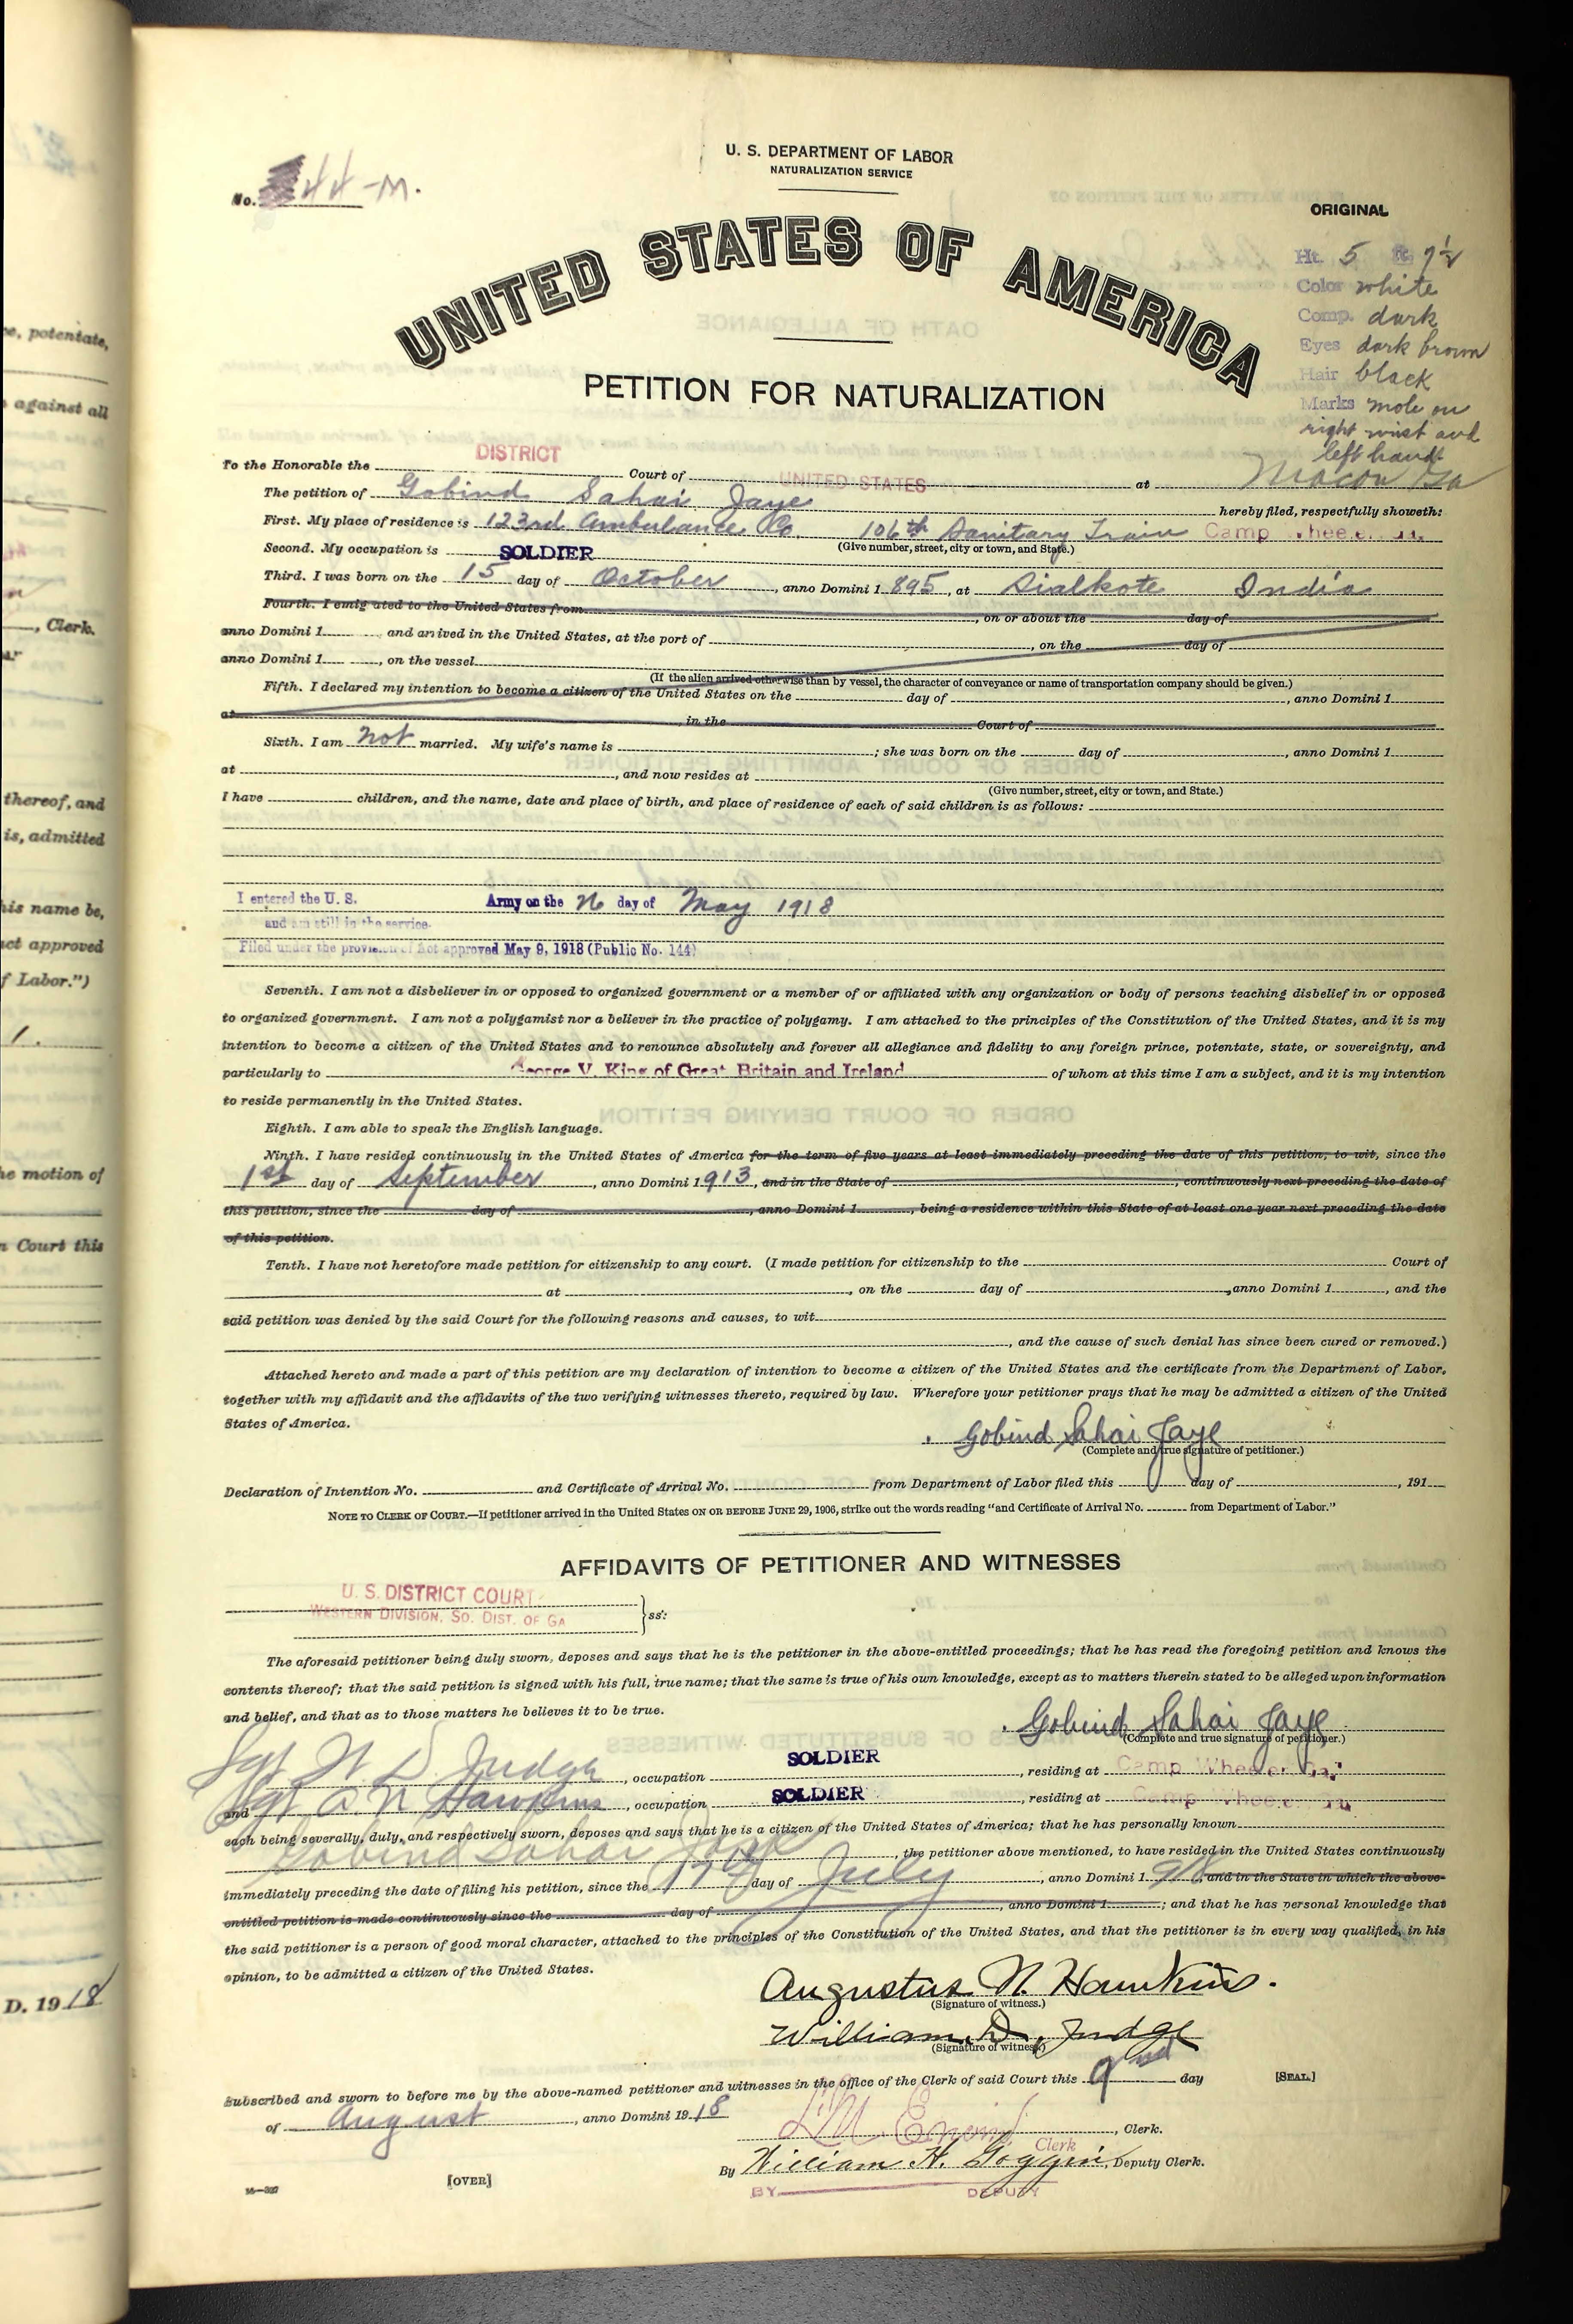 U. S. DEPARTMENT OF LABOR
NATURALIZATION SERVICE
No. 44-M.
ORIGINAL
UNITED STATES OF AMERICA
PETITION FOR NATURALIZATION
Ht. 5 ft. 7½
Color white
Comp. dark
Eyes dark brown
Hair black
Marks mole on
right wrist and
left hand
To the Honorable the DISTRICT Court of UNITED STATES at Macon Ga
The petition of Gobind Sahai Jaye hereby filed, respectfully showeth:
First. My place of residence is 123rd Ambulance Co. 106th Sanitary Train Camp Wheeler, Ga.
(Give number, street, city or town, and State.)
Second. My occupation is SOLDIER
Third. I was born on the 15 day of October, anno Domini 1895, at Sialkote India
Fourth. I emigrated to the United States from, on or about the day of
anno Domini 1, and arrived in the United States, at the port of, on the day of
anno Domini 1, on the vessel
(If the alien arrived otherwise than by vessel, the character of conveyance or name of transportation company should be given.)
Fifth. I declared my intention to become a citizen of the United States on the day of, anno Domini 1
at, in the Court of
Sixth. I am not married. My wife's name is; she was born on the day of, anno Domini 1
at, and now resides at
(Give number, street, city or town, and State.)
I have children, and the name, date and place of birth, and place of residence of each of said children is as follows:
I entered the U. S. Army on the 26 day of May 1918
and am still in the service.
Filed under the provision of Act approved May 9, 1918 (Public No. 144)
Seventh. I am not a disbeliever in or opposed to organized government or a member of or affiliated with any organization or body of persons teaching disbelief in or opposed
to organized government. I am not a polygamist nor a believer in the practice of polygamy. I am attached to the principles of the Constitution of the United States, and it is my
intention to become a citizen of the United States and to renounce absolutely and forever all allegiance and fidelity to any foreign prince, potentate, state, or sovereignty, and
particularly to George V. King of Great Britain and Ireland of whom at this time I am a subject, and it is my intention
to reside permanently in the United States.
Eighth. I am able to speak the English language.
Ninth. I have resided continuously in the United States of America for the term of five years at least immediately preceding the date of this petition, to wit, since the
1st day of September, anno Domini 1913, and in the State of, continuously next preceding the date of
this petition, since the day of, anno Domini 1, being a residence within this State of at least one year next preceding the date
of this petition.
Tenth. I have not heretofore made petition for citizenship to any court. (I made petition for citizenship to the Court of
at, on the day of, anno Domini 1, and the
said petition was denied by the said Court for the following reasons and causes, to wit
, and the cause of such denial has since been cured or removed.)
Attached hereto and made a part of this petition are my declaration of intention to become a citizen of the United States and the certificate from the Department of Labor,
together with my affidavit and the affidavits of the two verifying witnesses thereto, required by law. Wherefore your petitioner prays that he may be admitted a citizen of the United
States of America.
Gobind Sahai Jaye
(Complete and true signature of petitioner.)
Declaration of Intention No. and Certificate of Arrival No. from Department of Labor filed this day of, 191
NOTE TO CLERK OF COURT.—If petitioner arrived in the United States ON OR BEFORE JUNE 29, 1906, strike out the words reading "and Certificate of Arrival No. from Department of Labor."
AFFIDAVITS OF PETITIONER AND WITNESSES
U. S. DISTRICT COURT
WESTERN DIVISION, SO. DIST. OF GA
ss:
The aforesaid petitioner being duly sworn, deposes and says that he is the petitioner in the above-entitled proceedings; that he has read the foregoing petition and knows the
contents thereof; that the said petition is signed with his full, true name; that the same is true of his own knowledge, except as to matters therein stated to be alleged upon information
and belief, and that as to those matters he believes it to be true.
Gobind Sahai Jaye
(Complete and true signature of petitioner.)
Sgt W D Judge, occupation SOLDIER, residing at Camp Wheeler Ga.
and Sgt A N Hawkins, occupation SOLDIER, residing at Camp Wheeler Ga
each being severally, duly, and respectively sworn, deposes and says that he is a citizen of the United States of America; that he has personally known
Gobind Sahai Jaye, the petitioner above mentioned, to have resided in the United States continuously
immediately preceding the date of filing his petition, since the 17th day of July, anno Domini 1918, and in the State in which the above-
entitled petition is made continuously since the day of, anno Domini 1; and that he has personal knowledge that
the said petitioner is a person of good moral character, attached to the principles of the Constitution of the United States, and that the petitioner is in every way qualified, in his
opinion, to be admitted a citizen of the United States.
Augustus N. Hawkins.
(Signature of witness.)
William D. Judge
(Signature of witness.)
Subscribed and sworn to before me by the above-named petitioner and witnesses in the office of the Clerk of said Court this 2nd day [SEAL]
of August, anno Domini 1918
L M Erwin, Clerk.
Clerk
By William H. Goggin, Deputy Clerk.
BY DEPUTY
[OVER]
ce, potentate,
against all
, Clerk.
thereof, and
is, admitted
his name be,
act approved
f Labor.")
he motion of
n Court this
D. 1918